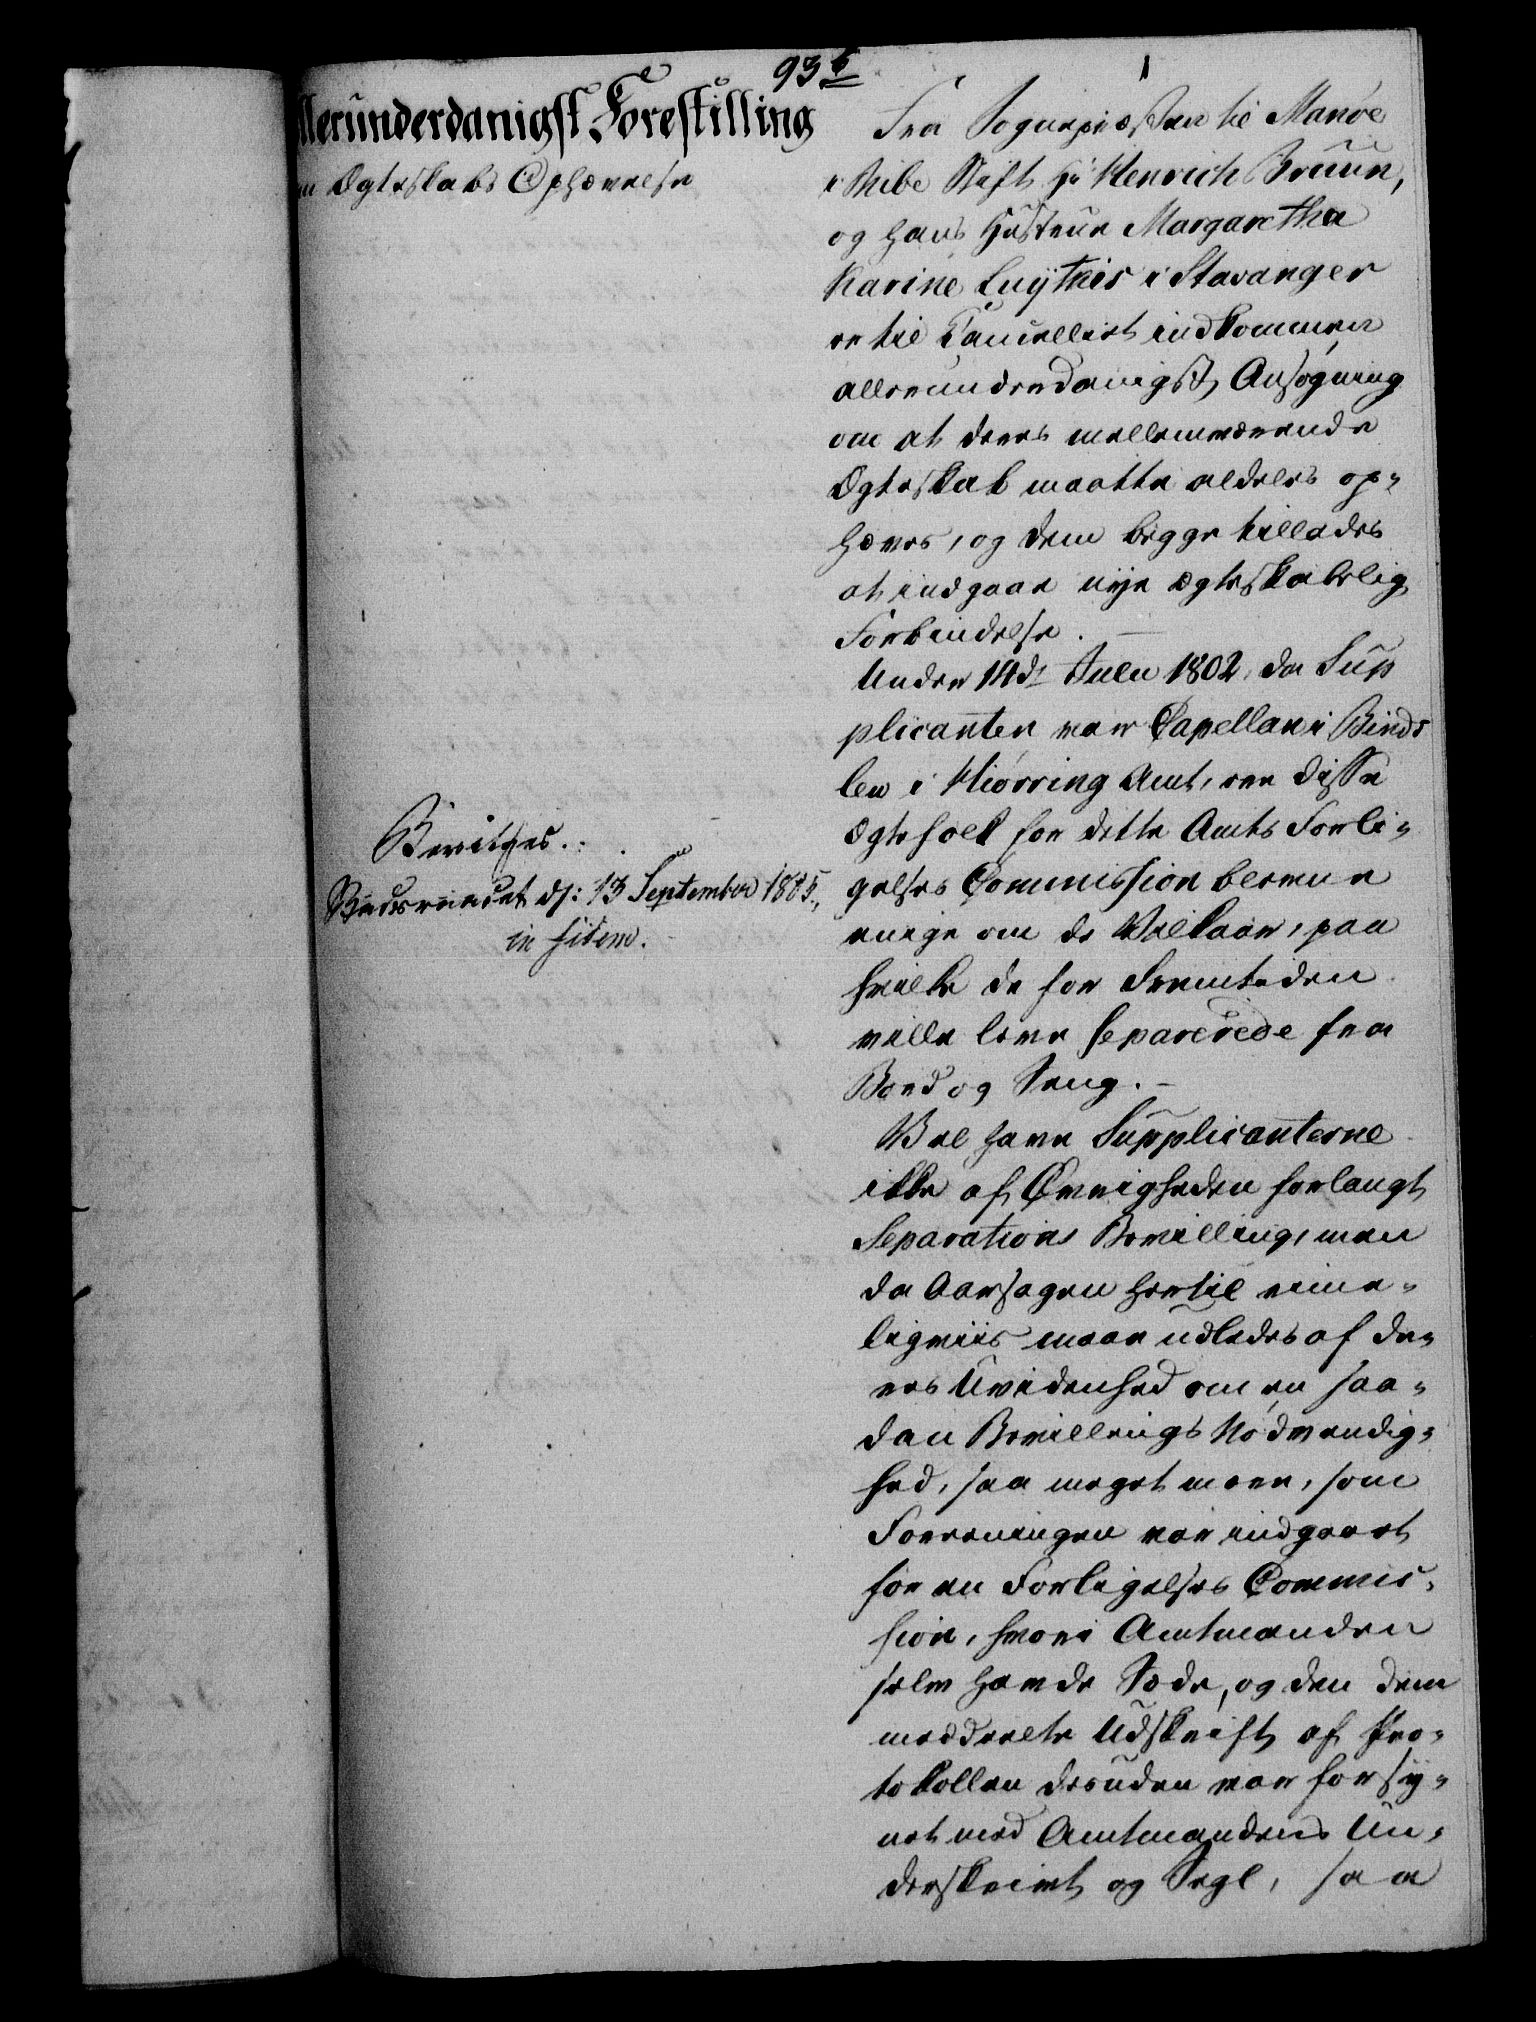 935
1
llerunderdanigst Forestilling
m Ægteskabs Ophævelse
Bevilges.
Friderichsberg d: 13 September 1805.,
in fidem.
Fra Sognepræsten til Manöe
i Ribe Stift Hr Henrich Bruun,
og hans Hustrue Margaretha
Karine Luÿthis i Stavanger
er til Cancelliet indkommen
allerunderdanigst Ansøgning
om at deres mellemværende
Ægteskab maatte aldeles op-
hæves, og dem begge tillades
at indgaae nye ægteskabelig
Forbindelse. —
Under 14d Julii 1802, da Sup
plicanten var Capellan i Binds
lev i Hiørring Amt, ere disse
Ægtefolk for dette Amts Forli-
gelses Commission blevne
enige om de Vilkaar, paa
hvilke de for Fremtiden
ville leve separerede fra
Bord og Seng. —
Vel have Supplicanterne
ikke af Øvrigheden forlangt
Separations Bevilling, men
da Aarsagen hertil rime-
ligviis maae udledes af de-
res Uvidenhed om en saa-
dan Bevillings Nødvendig-
hed, saa meget meer, som
Foreningen var indgaaet
for en Forligelses Commis-
sion, hvori Amtmanden
selv havde Sæde, og den dem
meddeelte Udskrift af Pro-
tokollen desuden var forsy-
net med Amtmandens Un-
derskrivt og Segl, saa